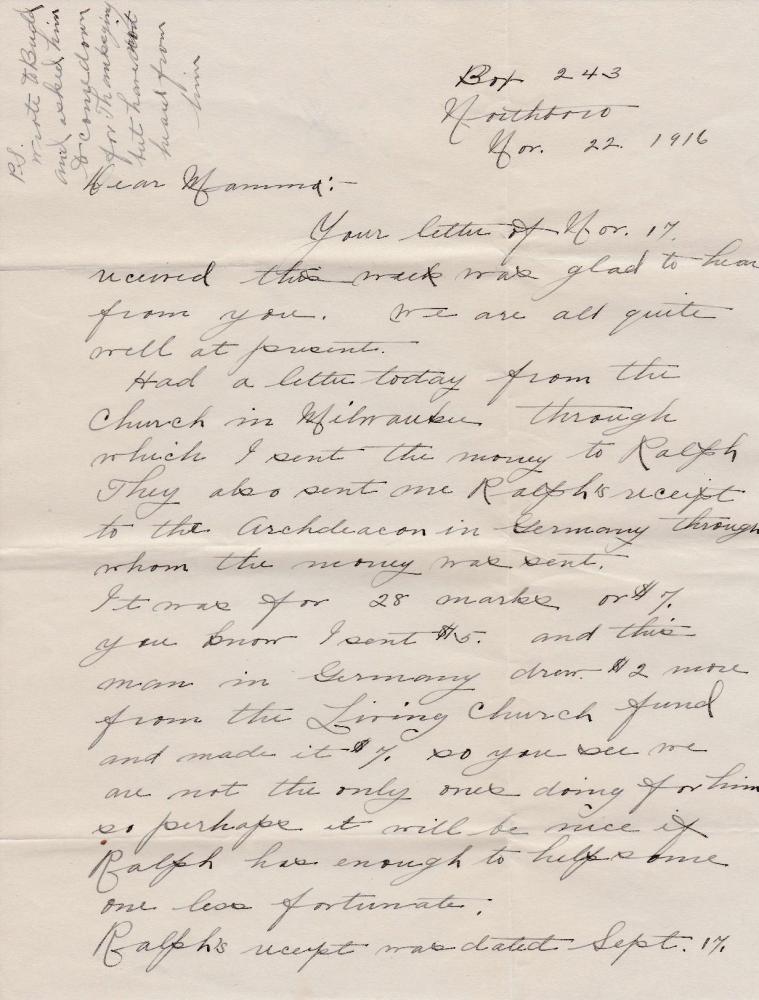 Box 243
Northboro
Nov. 22. 1916
Dear Mamma:-
Your letter of Nov. 17.
received this week was glad to hear
from you. We are all quite
well at present.
Had a letter today from the
Church in Milwaukee through
which I sent the money to Ralph
They also sent me Ralph's receipt
to the Archdeacon in Germany through
whom the money was sent.
It was for 28 marks or $7.
you know I sent $5. and this
man in Germany drew $2 more
from the Living Church fund
and made it $7. so you see we
are not the only ones doing for him
so perhaps it will be nice if
Ralph has enough to help some
one less fortunate.
Ralph's receipt was dated Sept. 17.
P.S.
wrote to Budd
and asked him
to come down
for Thanksgiving
but have not
heard from
him